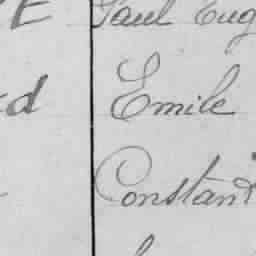 Paul Eug
Emile
Constant